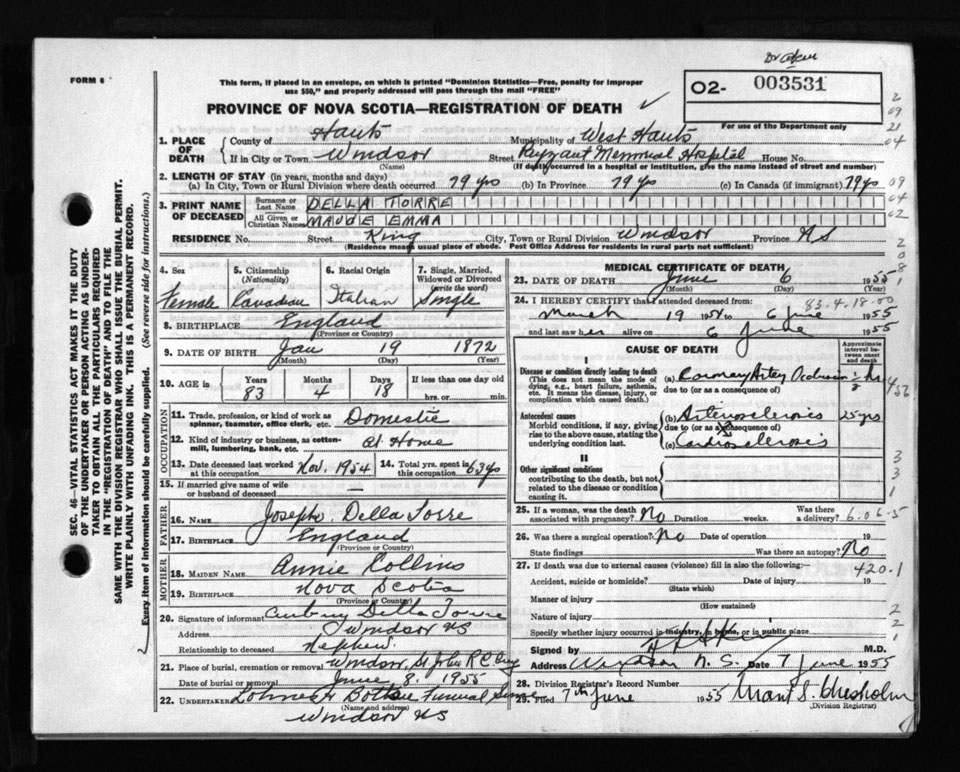 FORM 6
This form, if placed in an envelope, on which is printed "Dominion Statistics—Free, penalty for improper
use $50," and properly addressed will pass through the mail "FREE"
PROVINCE OF NOVA SCOTIA—REGISTRATION OF DEATH
02- 003531
For use of the Department only
1. PLACE OF DEATH County of Hants Municipality of West Hants
If in City or Town Windsor Street Payzant Memorial Hospital House No.
(Name) (If hospital or institution, give the name instead of street and number)
2. LENGTH OF STAY (in years, months and days)
(a) In City, Town or Rural Division where death occurred 79 yrs (b) In Province 79 yrs (c) In Canada (if immigrant) 79 yrs
3. PRINT NAME OF DECEASED Surname or Last Name DELLA TORRE
All Given or Christian Names MAUDE EMMA
RESIDENCE No. Street King City, Town or Rural Division Windsor Province N S
(Residence means usual place of abode. Post Office Address for residents in rural parts not sufficient)
4. Sex Female
5. Citizenship (Nationality) Canadian
6. Racial Origin Italian
7. Single, Married, Widowed or Divorced (write the word) Single
8. BIRTHPLACE England
(Province or Country)
9. DATE OF BIRTH Jan 19 1872
(Month) (Day) (Year)
10. AGE in Years 83 Months 4 Days 18 If less than one day old hrs. or min.
OCCUPATION
11. Trade, profession, or kind of work as spinner, teamster, office clerk, etc. Domestic
12. Kind of industry or business, as cotton-mill, lumbering, bank, etc. at Home
13. Date deceased last worked at this occupation Nov. 1954 14. Total yrs. spent in this occupation 63 yrs
15. If married give name of wife or husband of deceased —
FATHER
16. NAME Joseph Della Torre
17. BIRTHPLACE England
(Province or Country)
MOTHER
18. MAIDEN NAME Annie Collins
19. BIRTHPLACE Nova Scotia
(Province or Country)
20. Signature of informant Della Torre
Address Windsor N S
Relationship to deceased Nephew
21. Place of burial, cremation or removal Windsor, St John R C
Date of burial or removal June 8. 1955
22. UNDERTAKER Funeral
(Name and address)
Windsor N S
MEDICAL CERTIFICATE OF DEATH
23. DATE OF DEATH June 6 1955
(Month) (Day)
83.4.18.00
24. I HEREBY CERTIFY that I attended deceased from
March 19 1954 to 6 June 1955
and last saw her alive on 6 June 1955
CAUSE OF DEATH
Approximate interval between onset and death
I
Disease or condition directly leading to death
(This does not mean the mode of dying, e.g., heart failure, asthenia, etc. It means the disease, injury, or complication which caused death.)
(a) Coronary Artery Occlusion ½ hr
due to (or as a consequence of)
Antecedent causes
Morbid conditions, if any, giving rise to the above cause, stating the underlying condition last.
(b) Arteriosclerosis 25 yrs
due to (or as a consequence of)
(c) Cardiosclerosis
II
Other significant conditions
contributing to the death, but not related to the disease or condition causing it.
25. If a woman, was the death associated with pregnancy? No Duration weeks. Was there a delivery? 6.06.5
26. Was there a surgical operation? No Date of operation 19
State findings Was there an autopsy? No
27. If death was due to external causes (violence) fill in also the following:— 420.1
Accident, suicide or homicide? Date of injury 19
(State which)
Manner of injury
(How sustained)
Nature of injury
Specify whether injury occurred in industry, in home, or in public place
Signed by M.D.
Address Windsor N. S. Date 7 June 1955
28. Division Registrar's Record Number
29. Filed 7th June 1955 Chisholm
(Division Registrar)
SEC. 46—VITAL STATISTICS ACT MAKES IT THE DUTY
OF THE UNDERTAKER OR PERSON ACTING AS UNDER-
TAKER TO OBTAIN ALL THE PARTICULARS REQUIRED
IN THE "REGISTRATION OF DEATH" AND TO FILE THE
SAME WITH THE DIVISION REGISTRAR WHO SHALL ISSUE THE BURIAL PERMIT.
WRITE PLAINLY WITH UNFADING INK. THIS IS A PERMANENT RECORD.
Every item of information should be carefully supplied. (See reverse side for instructions.)